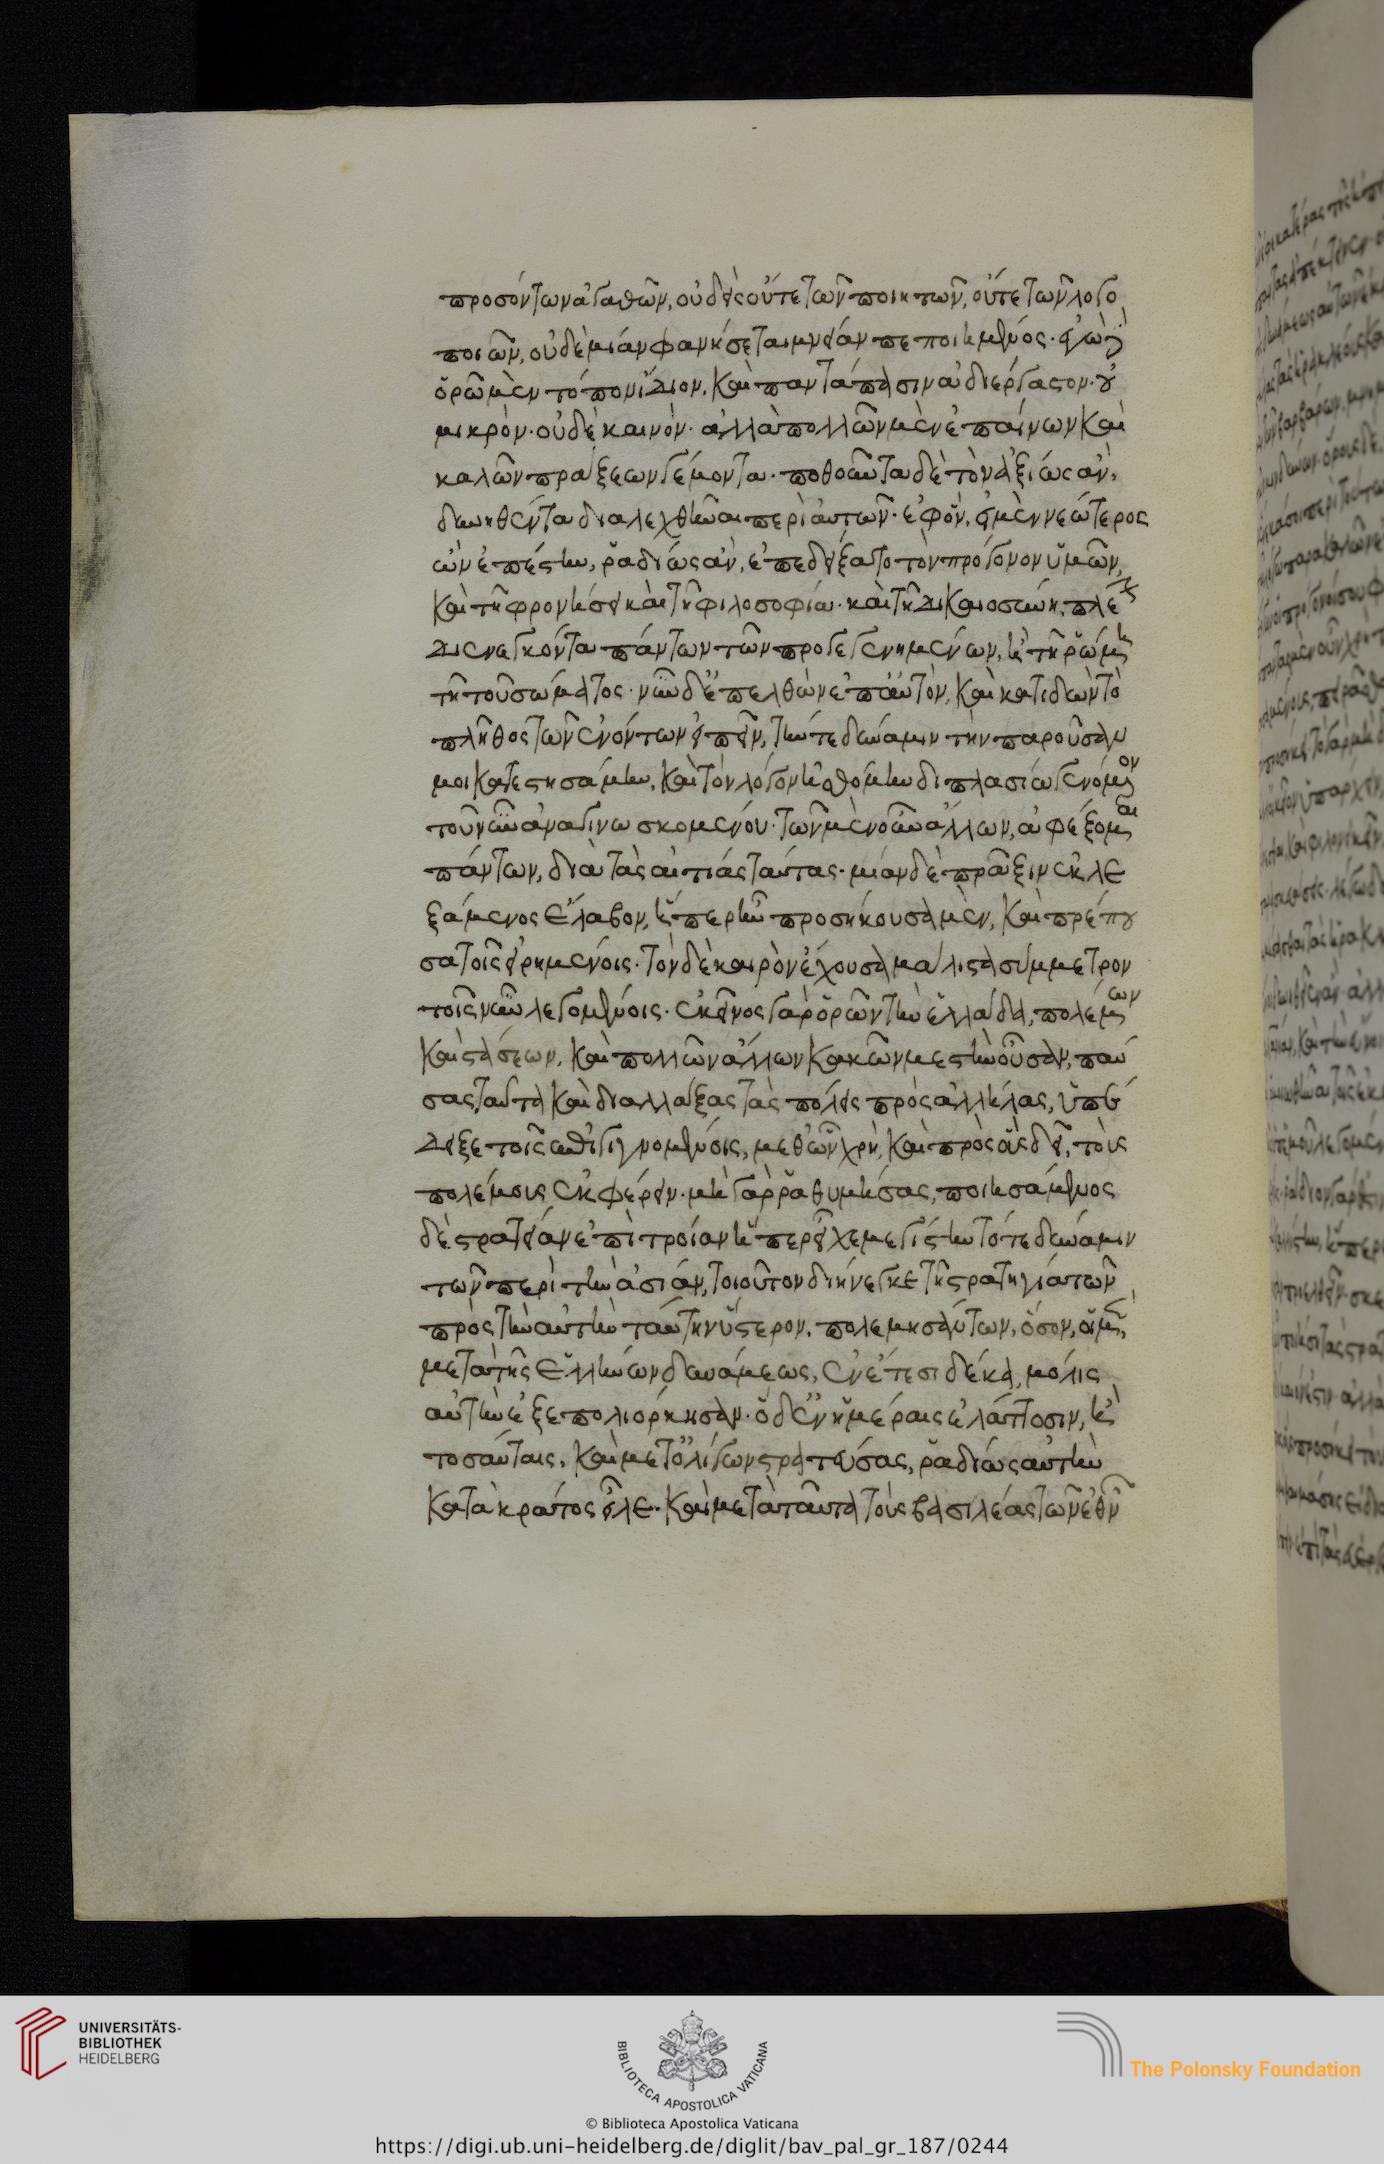 προσόντων ἀγαθῶν, οὐδεὶς οὔτε τῶν ποιητῶν, οὔτε τῶν λογο
ποιῶν, οὐδεμίαν φανήσεται μνείαν πεποιημένος. ἐγὼ δ
ὁρῶ μὲν τόπον ἴδιον, καὶ παντάπασιν ἀδιέργαστον. οὐ
μικρὸν. οὐδὲ καινὸν. ἀλλὰ πολλῶν μὲν ἐπαίνων καὶ
καλῶν πράξεων γέμοντα. ποθοῦντα δὲ τὸν ἀξίως ἂν
δυνηθέντα διαλεχθῆναι περὶ αὐτῶν. ἐφ' ὃν, εἰ μὲν νεώτερος
ὢν ἐπέστην, ῥαδίως ἂν, ἐπεδείξατο τὸν πρόγονον ὑμῶν,
καὶ τῇ φρονήσει καὶ τῇ φιλοσοφίᾳ. καὶ τῇ δικαιοσύνῃ, πλεῖον
διενεγκόντα πάντων τῶν προγεγενημένων, ἢ τῇ ῥώμῃ
τῇ τοῦ σώματος. νῦν δ' ἐπελθὼν ἐπ' αὐτὸν, καὶ κατιδὼν τὸ
πλῆθος τῶν ἐνόντων εἰπεῖν, τήν τε δύναμιν τὴν παροῦσάν
μοι κατεστησάμην, καὶ τὸν λόγον ᾐσθόμην διπλάσιον γενόμενον
τοῦ νῦν ἀναγινωσκομένου. τῶν μὲν οὖν ἄλλων, ἀφέξομαι
πάντων, διὰ τὰς αἰτίας ταύτας. μίαν δὲ πρᾶξιν ἐκλε
ξάμενος ἔλαβον, ἥπερ ἦν προσήκουσα μὲν, καὶ πρέπου
σα τοῖς εἰρημένοις. τὸν δὲ καιρὸν ἔχουσα μάλιστα σύμμετρον
τοῖς νῦν λεγομένοις. ἐκεῖνος γὰρ ὁρῶν τὴν ἑλλάδα, πολέμων
καὶ στάσεων, καὶ πολλῶν ἄλλων κακῶν μεστὴν οὖσαν, παύ
σας ταῦτα καὶ διαλλάξας τὰς πόλεις πρὸς ἀλλήλας, ὑπέ
δειξε τοῖς ἐπιγιγνομένοις, μεθ' ὧν χρὴ, καὶ πρὸς οὓς δεῖ, τοὺς
πολέμους ἐκφέρειν. μὴ γὰρ ῥαθυμήσας, ποιησάμενος
δὲ στρατείαν ἐπὶ τροίαν ἥπερ εἶχε μεγίστην τότε δύναμιν
τῶν περὶ τὴν ἀσίαν, τοσοῦτον διήνεγκε τῇ στρατηγίᾳ τῶν
πρὸς τὴν αὐτὴν ταύτην ὕστερον, πολεμησάντων, ὅσον, οἱ μὲν,
μετὰ τῆς ἑλλήνων δυνάμεως, ἐν ἔτεσι δέκα, μόλις
αὐτὴν ἐξεπολιόρκησαν. ὁ δ' ἐν ἡμέραις ἐλάττοσιν, ἢ
τοσαύταις, καὶ μετ' ὀλίγων στρατεύσας, ῥαδίως αὐτὴν
κατὰ κράτος εἷλε. καὶ μετὰ ταῦτα τοὺς βασιλέας τῶν ἐθνῶν
UNIVERSITÄTS-
BIBLIOTHEK
HEIDELBERG
BIBLIOTECA APOSTOLICA VATICANA
The Polonsky Foundation
© Biblioteca Apostolica Vaticana
https://digi.ub.uni-heidelberg.de/diglit/bav_pal_gr_187/0244